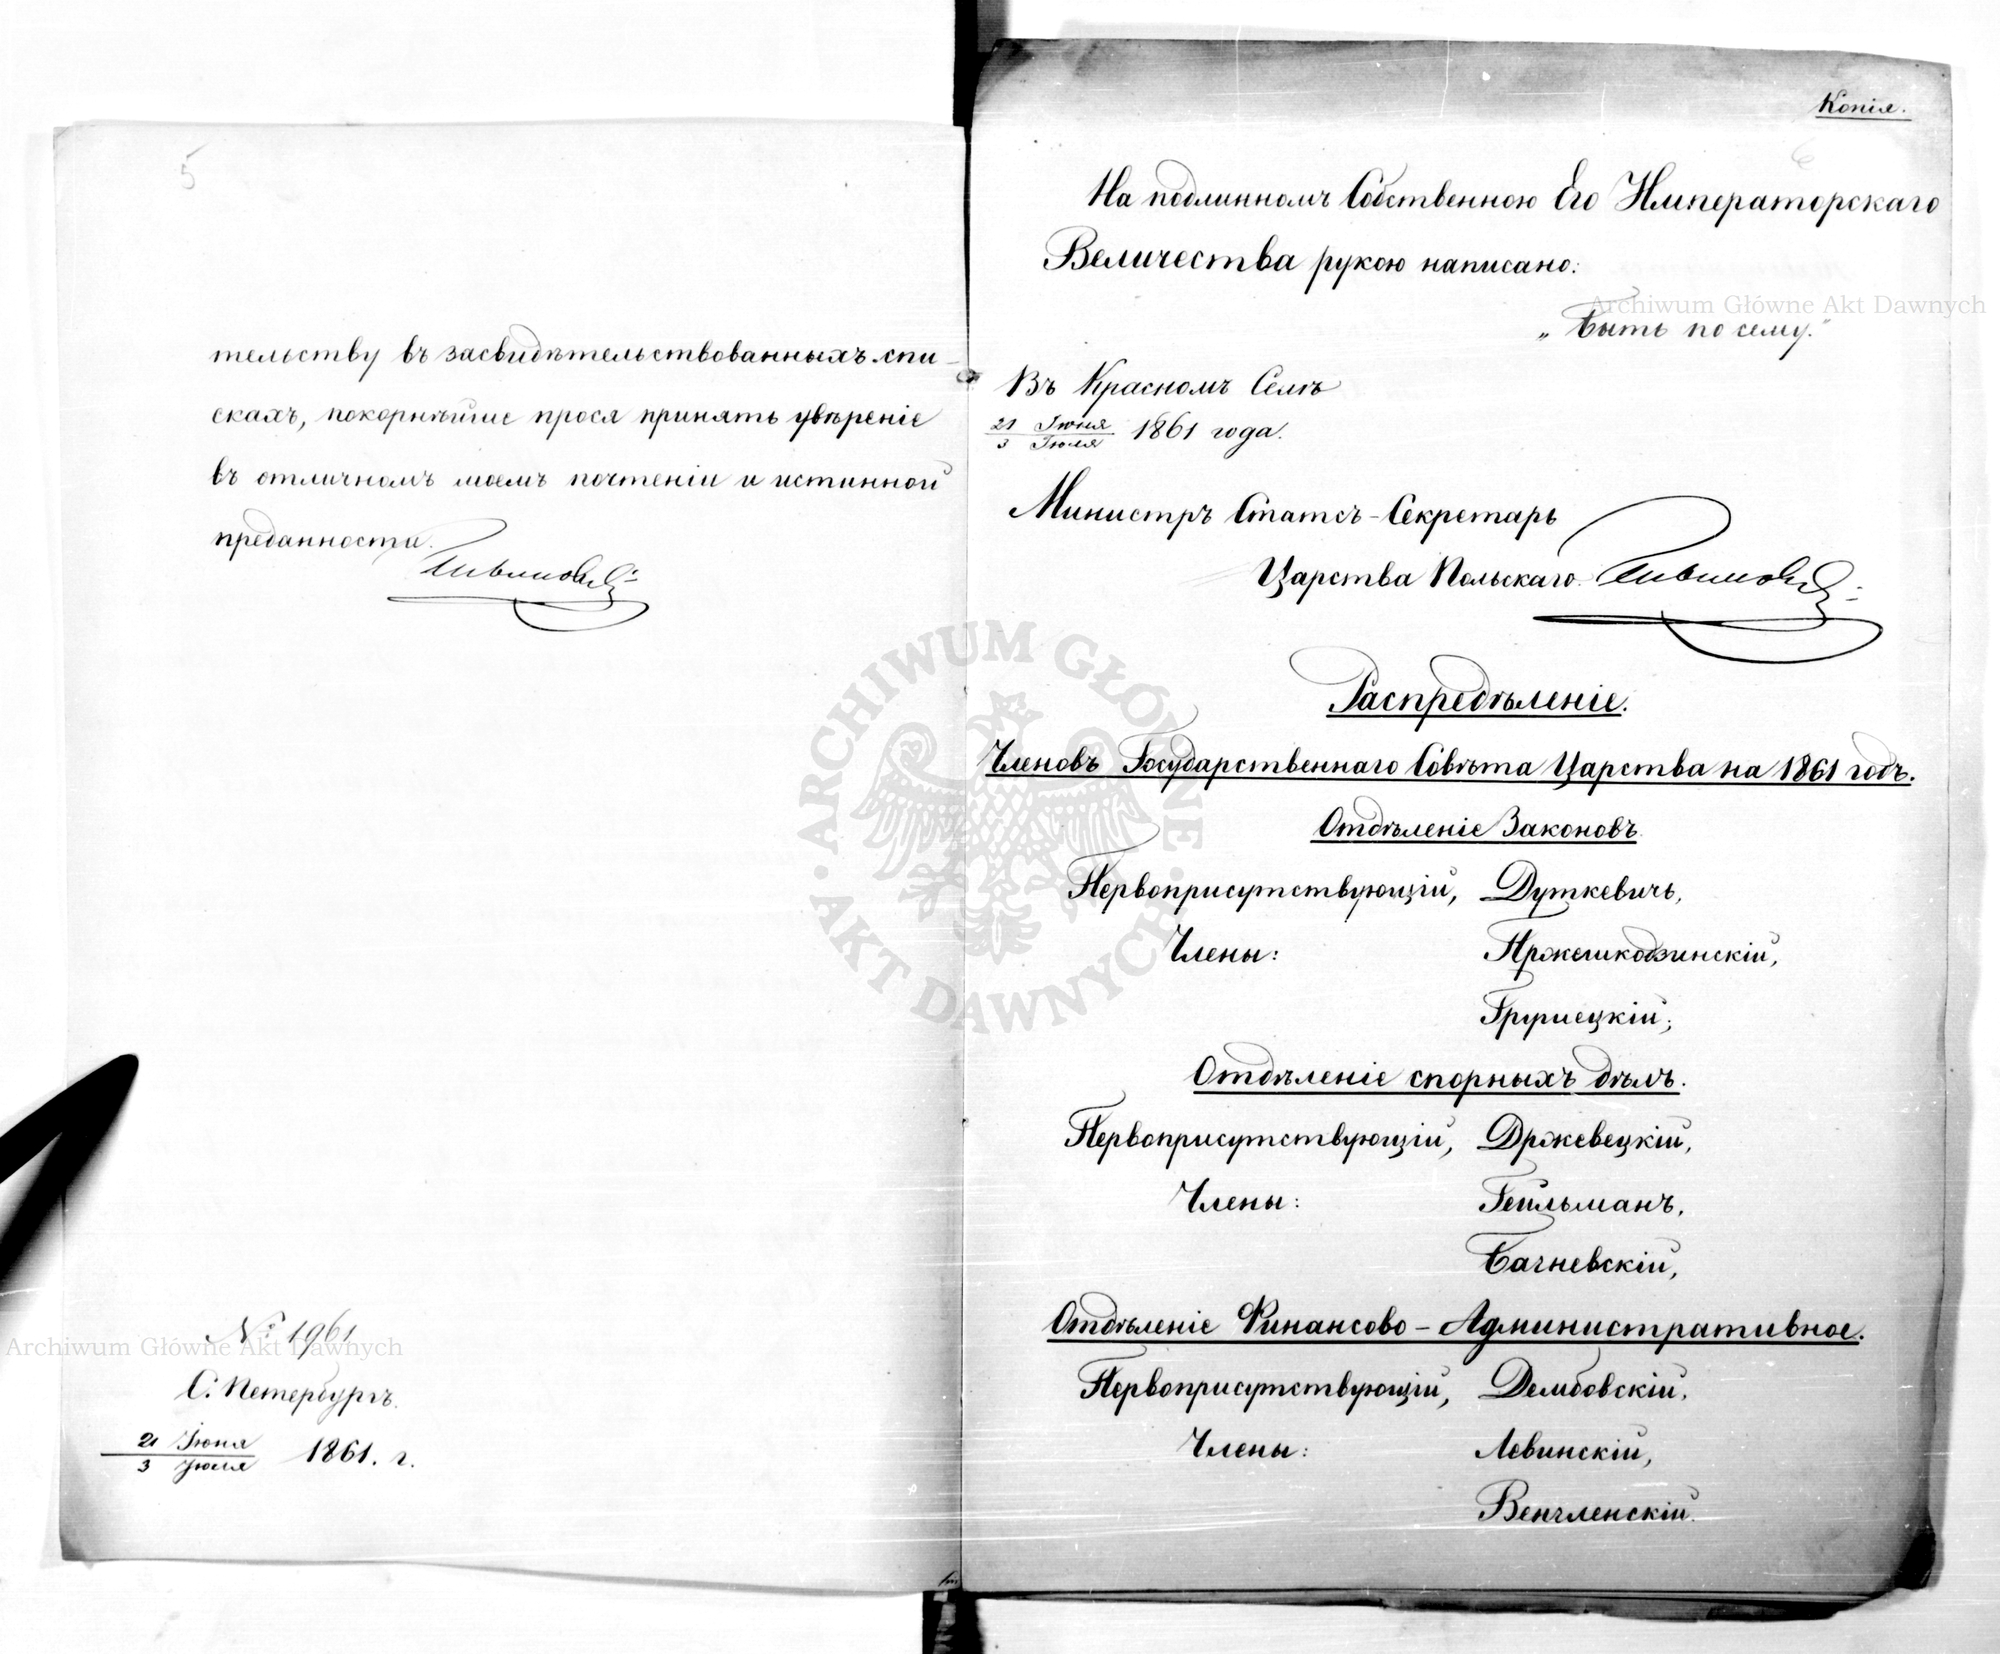 5
тельству въ засвидѣтельствованныхъ спи-
скахъ, покорнѣйше прося принять увѣреніе
въ отличномъ моемъ почтеніи и истинной
преданности.
№ 1961
С. Петербургъ.
21 Іюня
3 Іюля 1861. г.
Копія.
6
На подлинномъ Собственною Его Императорскаго
Величества рукою написано:
„Быть по сему."
Въ Красномъ Селѣ
21 Іюня
3 Іюля 1861 года.
Министръ Статсъ-Секретарь
Царства Польскаго.
Распредѣленіе.
Членовъ Государственнаго Совѣта Царства на 1861 годъ.
Отдѣленіе Законовъ.
Первоприсутствующій, Дуткевичъ,
Члены: Пржешкодзинскій,
Грушецкій;
Отдѣленіе спорныхъ дѣлъ.
Первоприсутствующій, Држевецкій,
Члены: Гейльманъ,
Багневскій,
Отдѣленіе Финансово-Административное.
Первоприсутствующій, Дембовскій,
Члены: Левинскій,
Венгленскій.
Archiwum Główne Akt Dawnych
Archiwum Główne Akt Dawnych
ARCHIWUM GŁÓWNE AKT DAWNYCH